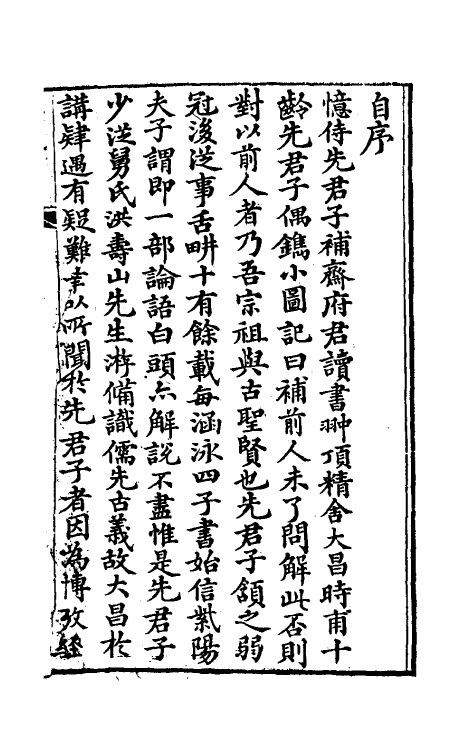 自序
憶侍先君子補齋府君讀書翀頂精舍大昌時甫十
齡先君子偶鐫小圖記曰補前人未了問解此否則
對以前人者乃吾宗祖與古聖賢也先君子頷之弱
冠後從事舌畊十有餘載每涵泳四子書始信紫陽
夫子謂即一部論語白頭亦解說不盡惟是先君子
少從舅氏洪壽山先生游備識儒先古義故大昌於
講肄遇有疑難幸以所聞於先君子者因為博攷經